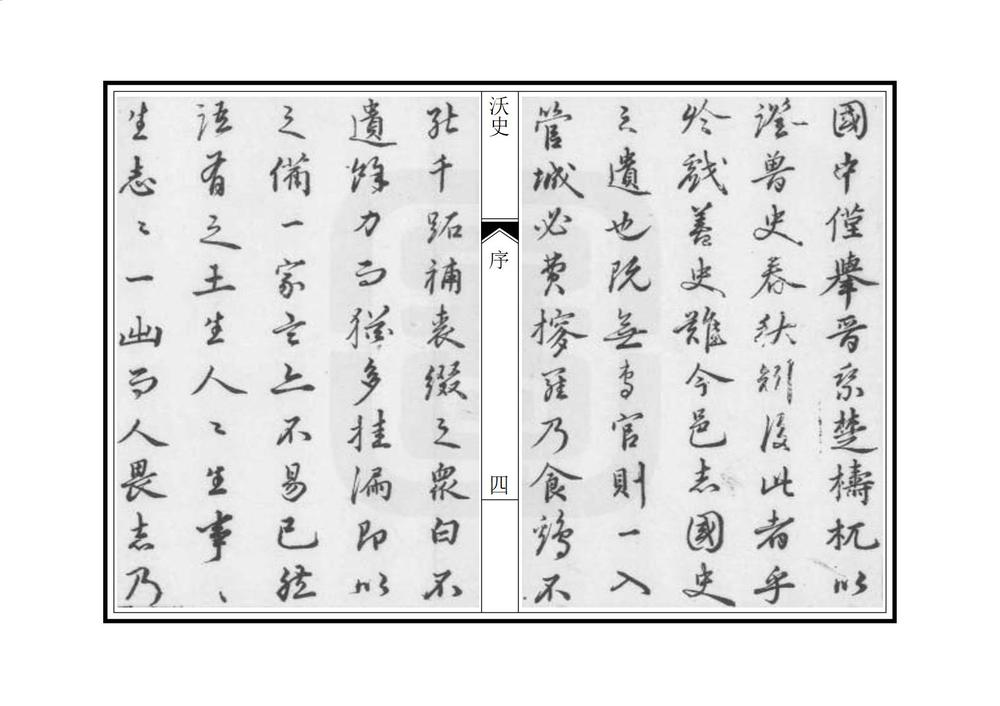 國中僅舉晉乘楚檮杌以
證魯史春秋矧後此者乎
於戲蓋史難今邑志國史
之遺也既無專官則一入
管城必費搜羅乃食鷄不
沃史
序
四
能千跖補裘綴之眾白不
遺餘力而猶多挂漏即以
之備一家言亦不易已然
語有之土生人〻生事〻
生志〻一出而人畏志乃